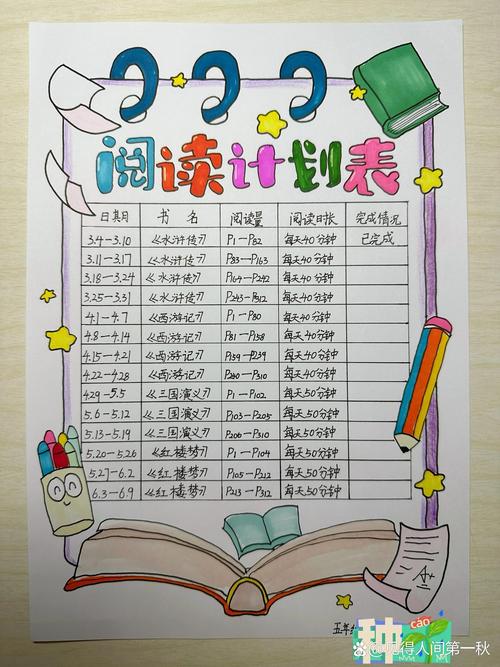 阅读计划表
日期 书名 阅读量 阅读时长 完成情况
3.4—3.10 《水浒传》 P1—P82 每天40分钟 已完成
3.11—3.17 《水浒传》 P83—P163 每天40分钟
3.18—3.24 《水浒传》 P164—P242 每天40分钟
3.25—3.31 《水浒传》 P243—P312 每天40分钟
4.1—4.7 《西游记》 P1—P80 每天40分钟
4.8—4.14 《西游记》 P81—P158 每天40分钟
4.15—4.21 《西游记》 P159—P239 每天40分钟
4.22—4.28 《西游记》 P240—P310 每天40分钟
4.29—5.5 《三国演义》 P1—P102 每天50分钟
5.6—5.12 《三国演义》 P103—P205 每天50分钟
5.13—5.19 《三国演义》 P206—P310 每天50分钟
5.20—5.26 《红楼梦》 P1—P104 每天50分钟
5.27—6.2 《红楼梦》 P105—P212 每天50分钟
6.3—6.9 《红楼梦》 P213—P312 每天50分钟
A+
五年
cǎo
种
得人间第一秋